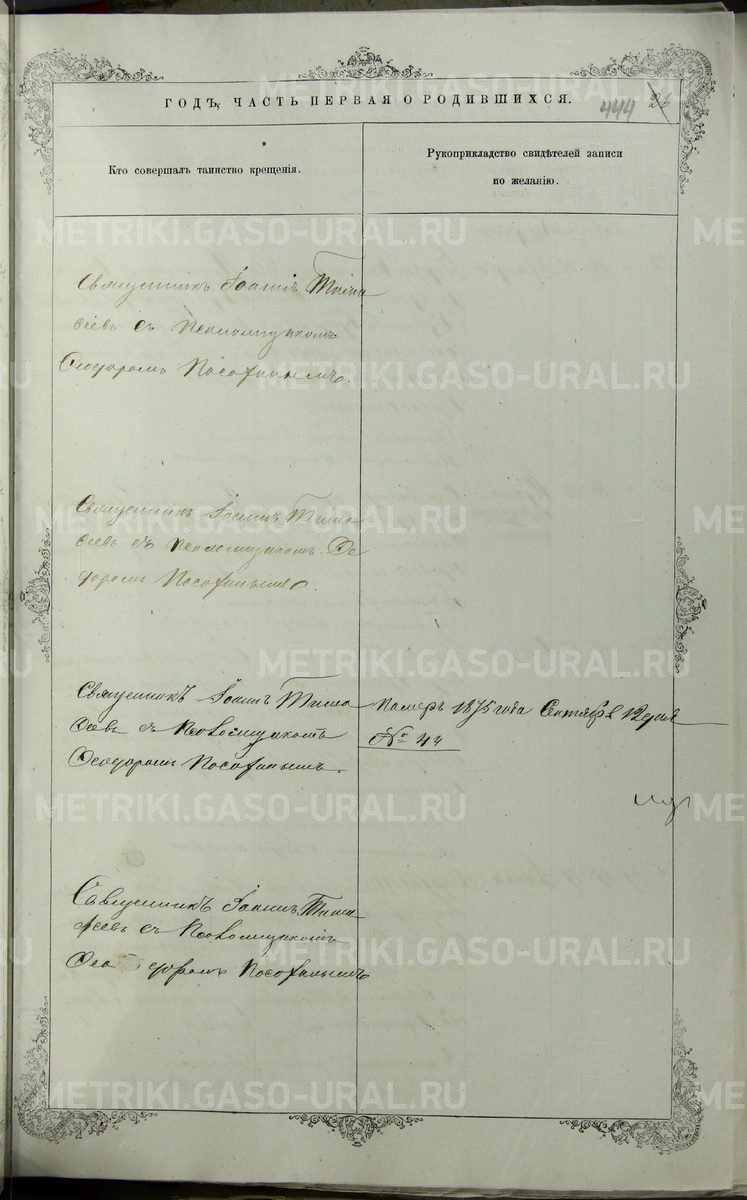 ГОДЪ, ЧАСТЬ ПЕРВАЯ О РОДИВШИХСЯ.
444 26
Кто совершалъ таинство крещенія.
Рукоприкладство свидѣтелей записи
по желанію.
Священникъ Іоаннъ Тимо
ѳеевъ съ Псаломщикомъ
Ѳеодоромъ
Священникъ Іоаннъ Тимо
ѳеевъ съ Псаломщикомъ Ѳе
одоромъ
Священникъ Іоаннъ Тимо
ѳеевъ съ Псаломщикомъ
Ѳеодоромъ
Померъ 1875 года Сентября 12 дня
№ 44
Священникъ Іоаннъ Тимо
ѳеевъ съ Псаломщикомъ
Ѳеодоромъ
METRIKI.GASO-URAL.RU